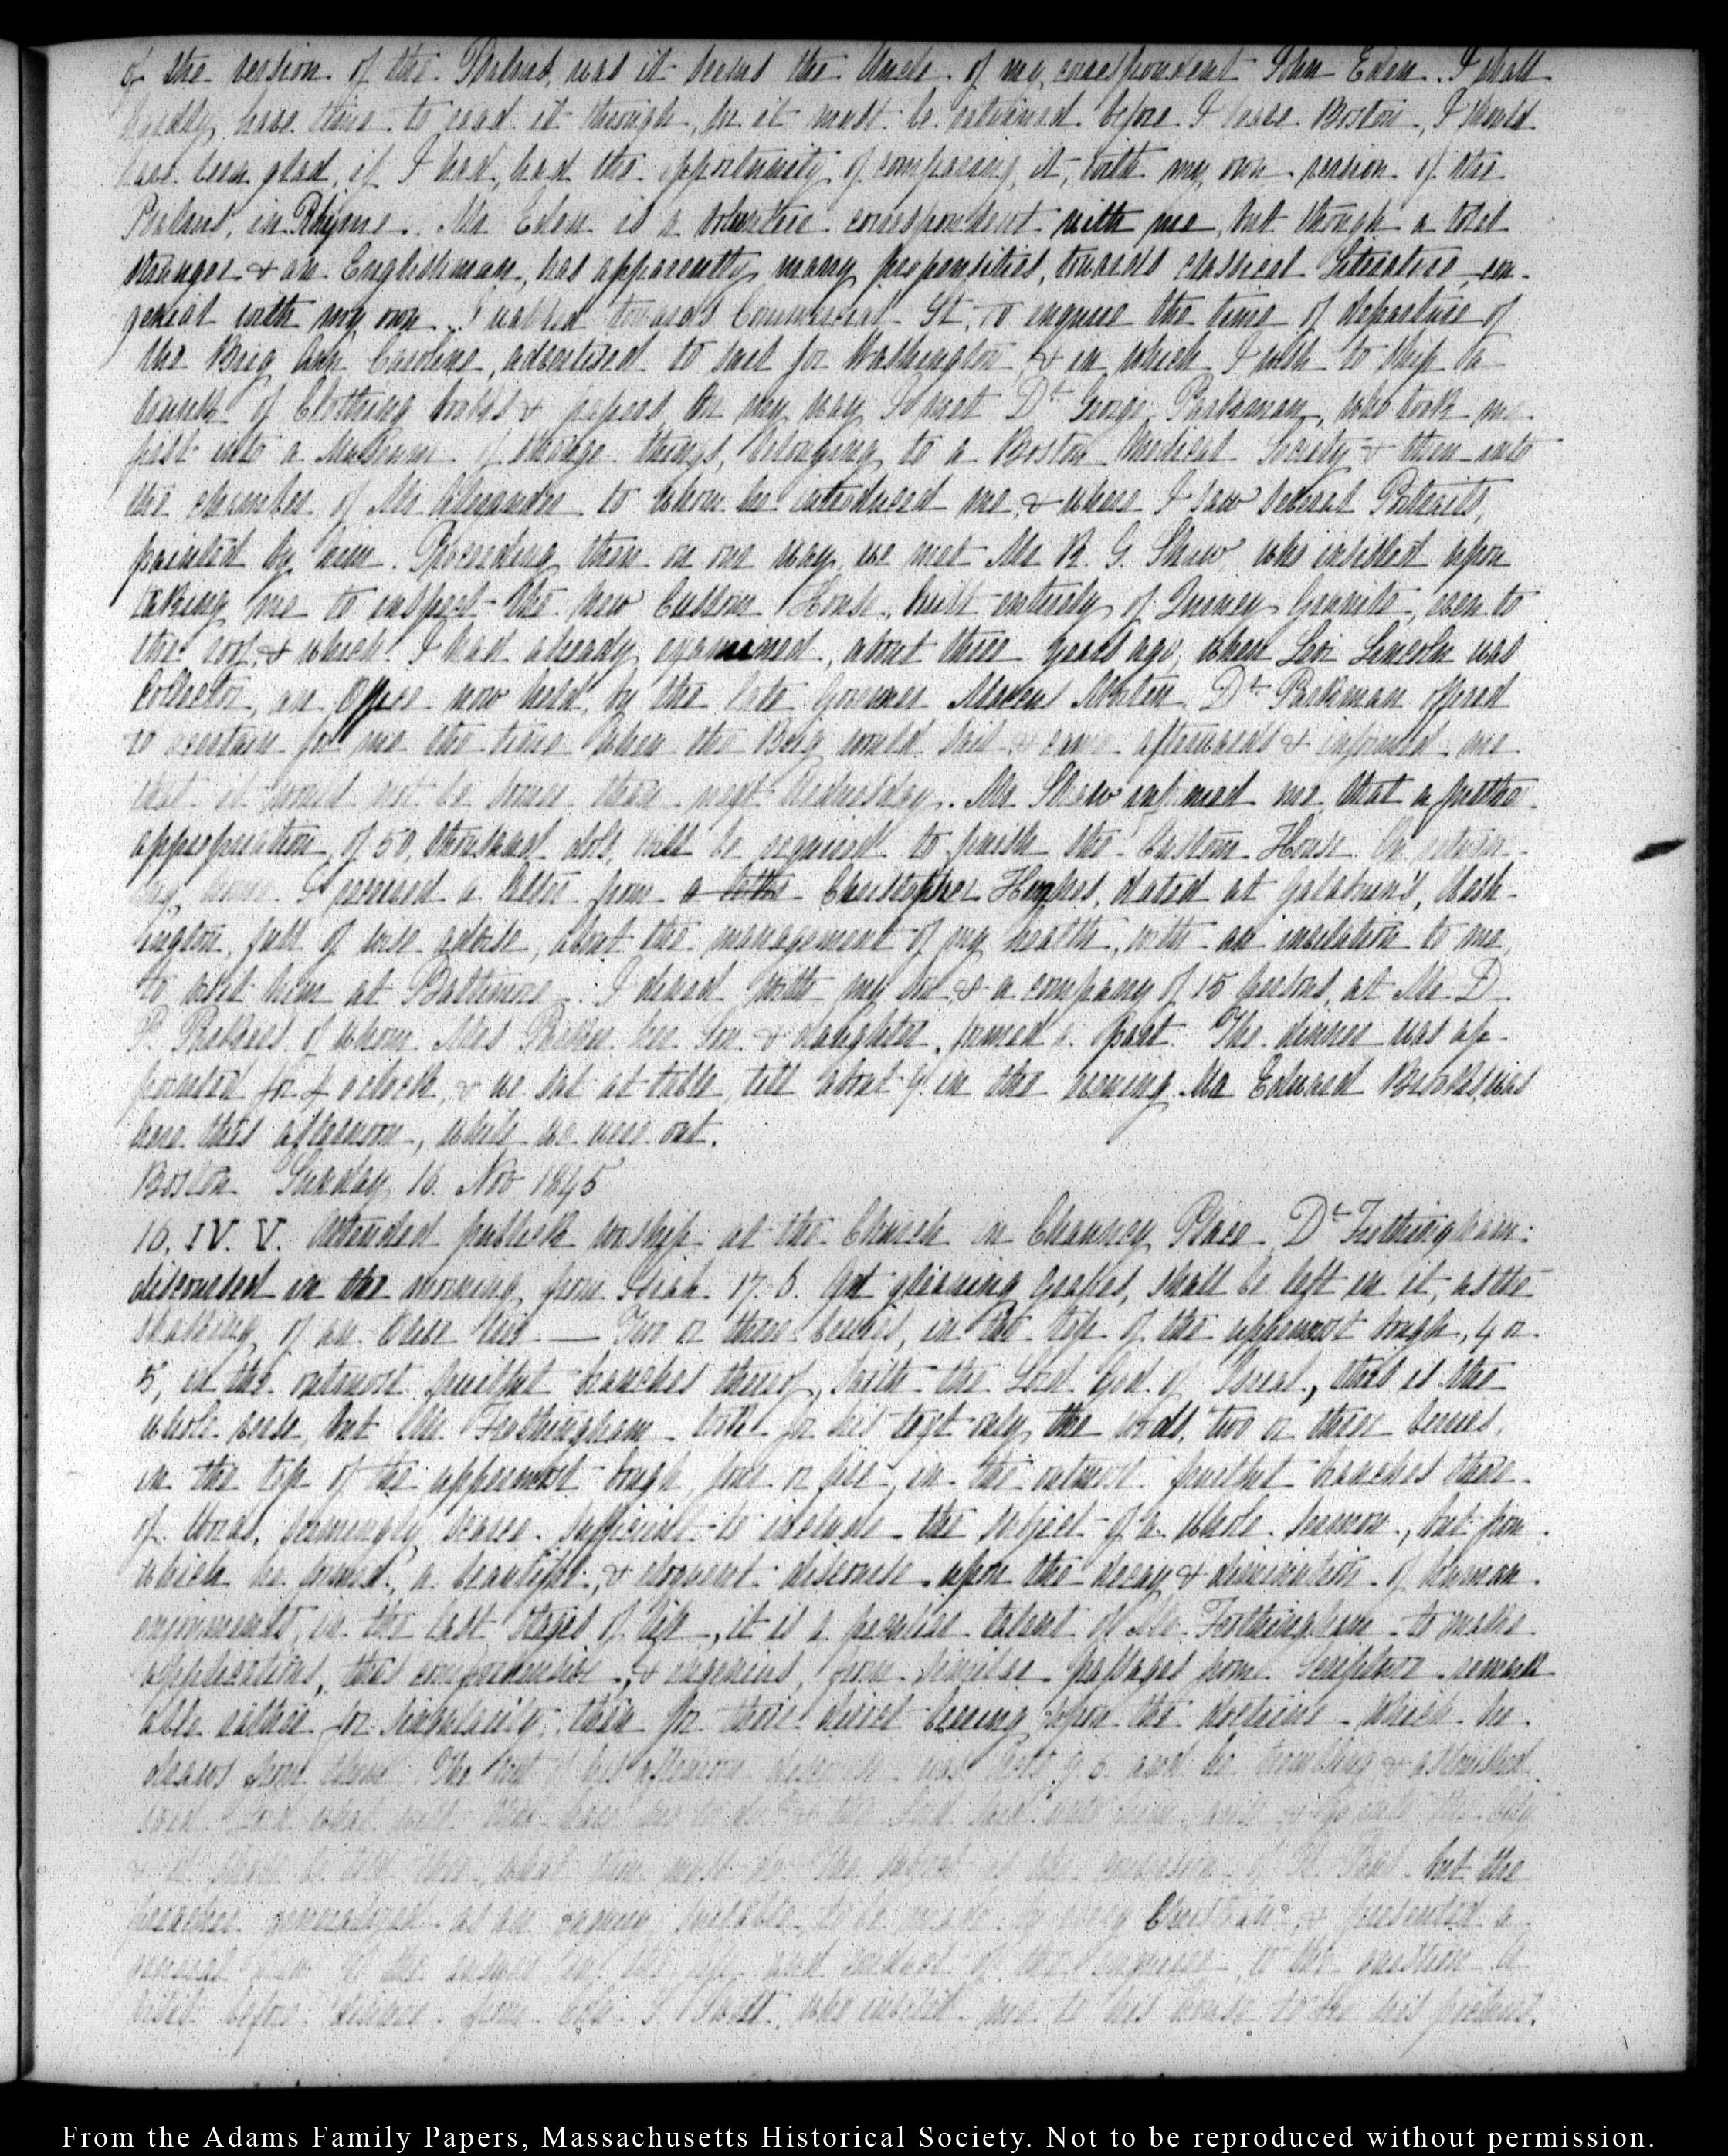 of the version of the Psalms, was it seems the Uncle of my correspondent John Eden. I shall
hardly have time to read it through, for it must be returned before I leave Boston, I should
have been glad, if I had, had the opportunity of comparing it, with my own version of the
Psalms, in Rhyme. Mr Eden is a volunteer correspondent with me, but though a total
stranger & an Englishman, has apparently many propensities, towards classical Literature, con-
genial with my own. I walked towards Commercial St, to enquire the time of departure of
the Brig Ann Caroline, advertised to sail for Washington, & in which I wish to ship a
trunk of Clothing books & papers. On my way I met Dr George Parkman, who took me
first into a Museum of strange things, belonging to a Boston Medical Society & then into
the chamber of Mr Alexander to whom he introduced me, & where I saw several Portraits,
painted by him. Proceeding then on our way, we met Mr R. G. Shaw, who insisted upon
taking me to inspect the new Custom House, built entirely of Quincy Granite, even to
the roof, & which I had already examined, about three years ago, when Levi Lincoln was
Collector, an Office now held, by the late Governor Marcus Morton. Dr Parkman offered
to ascertain for me the time when the Brig would sail, & came afterwards & informed me
that it would not be sooner than next Wednesday. Mr Shaw informed me that a further
appropriation, of 50, thousand dols, will be required to finish the Custom House. On return-
ing home I received a letter from a letter Christopher Hughes, dated at Gadsby's, Wash-
ington, full of wise advise, about the management of my health, with an invitation to me,
to visit him at Baltimore. I dined with my son & a company of 15 persons, at Mr D
P. Parkers of whom Mrs Parker her Son & daughter, formed a part. The dinner was ap-
pointed for 4 oclock, & we sat at table till about 7 in the evening. Mr Edward Brooks, was
here this afternoon, while we were out.
Boston Sunday 16. Nov 1845
16. IV. V. Attended publick worship at the Church in Chauncy Place Dr Frothingham:
discoursed in the morning from Isiah. 17. 6. Yet gleaning grapes, shall be left in it, as the
shaking of an Olive tree — Two or three berries, in the top of the uppermost bough, 4 or
5, in the outmost fruitful branches thereof, saith the Lord God of Israel, this is the
whole verse, but Mr Frothingham took for his text only the words, two or three berries,
in the top of the uppermost bough, four or five, in the outmost fruitful branches there-
of. Words, seemingly scarce sufficient to include the subject of a whole sermon, but from
which he formed, a beautiful, & eloquent discourse upon the decay & diminution of human
enjoyments, in the last stages of life, it is a peculiar talent of Mr Frothingham to make
applications, thus comprehensive, & ingenious, from similar passages from Scripture remark
able rather for singularity than for their direct bearing upon the doctrine which he
draws from them. The text of his afternoon discourse was Acts 9 6. and he trembling & astonished
said Lord what wilt thou have me to do & the Lord said unto him, arise & go into the City
& it shall be told thee, what thou must do. The subject is the conversion of St Paul but the
preacher generalized as an enquiry suitable, to be made by every Christian, & presented a
general view of the answer in the life and conduct of the enquirer, to the question. A
visit before dinner from who invited me to his house to see his pictures.